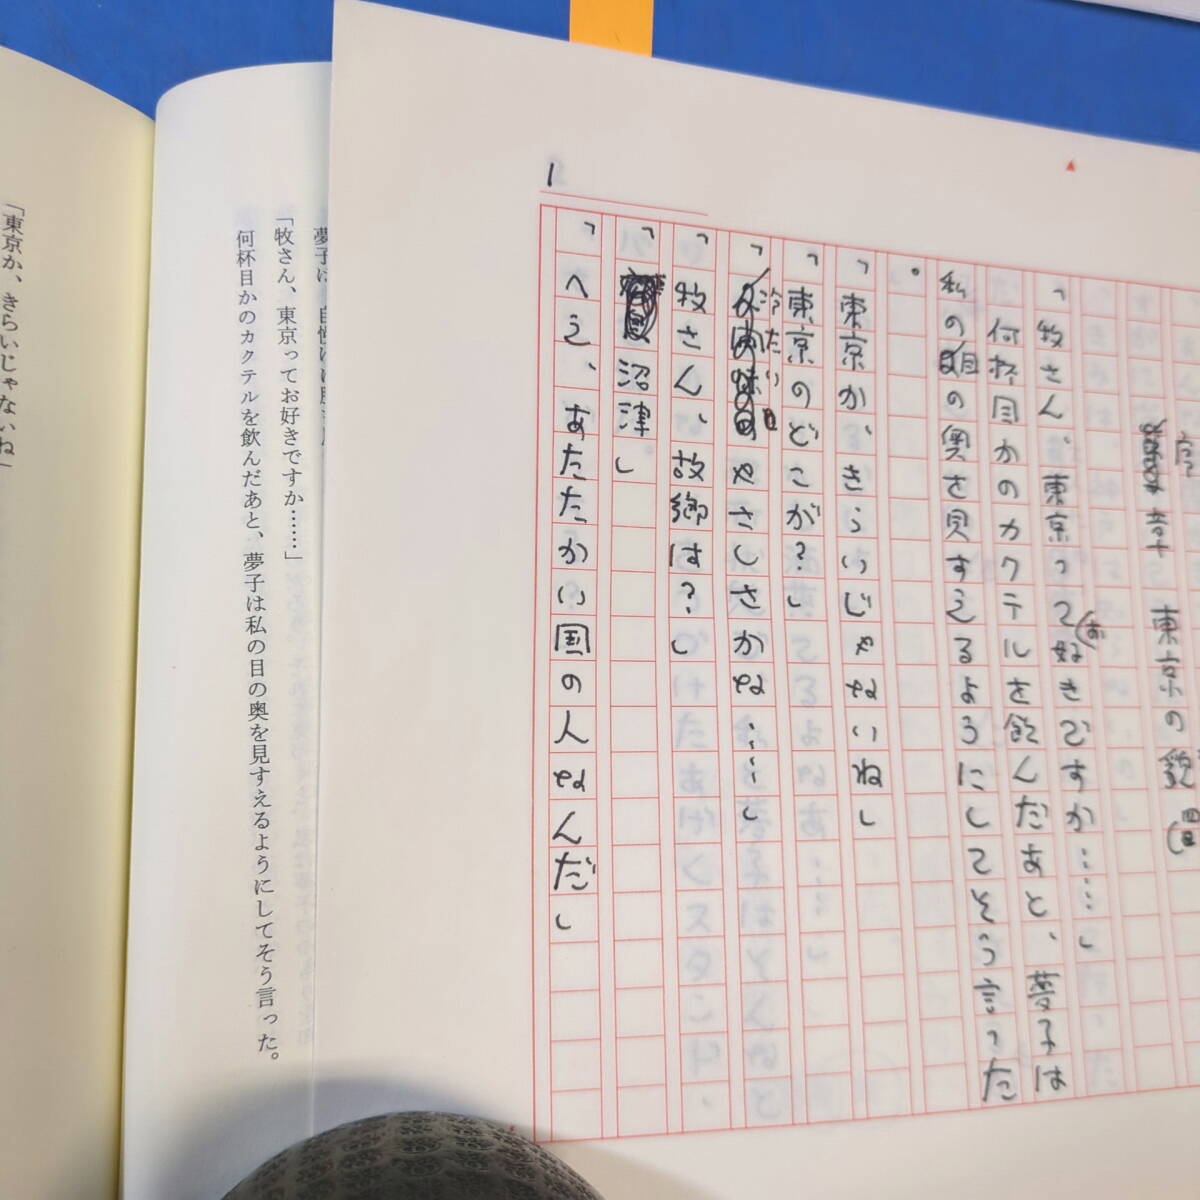 1
章 東京の貌
「牧さん、東京ってお好きですか……」
何杯目かのカクテルを飲んだあと、夢子は
私の目の奥を見すえるようにしてそう言った
。
「東京か、きらいじゃないね」
「東京のどこが?」
「冷たいやさしさかな……」
「牧さん、故郷は?」
「沼津」
「へえ、あたたかい国の人なんだ」
夢子は
「牧さん、東京ってお好きですか……」
何杯目かのカクテルを飲んだあと、夢子は私の目の奥を見すえるようにしてそう言った。
「東京か、きらいじゃないね」